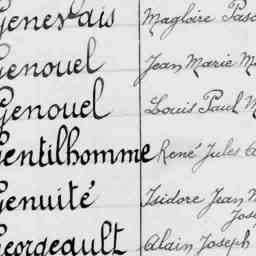 Genevais Magloire
Genouel Jean Marie
Genouel Louis Paul
Gentilhomme René Jules
Genuité Isidore Jean
Georgeault Alain Joseph